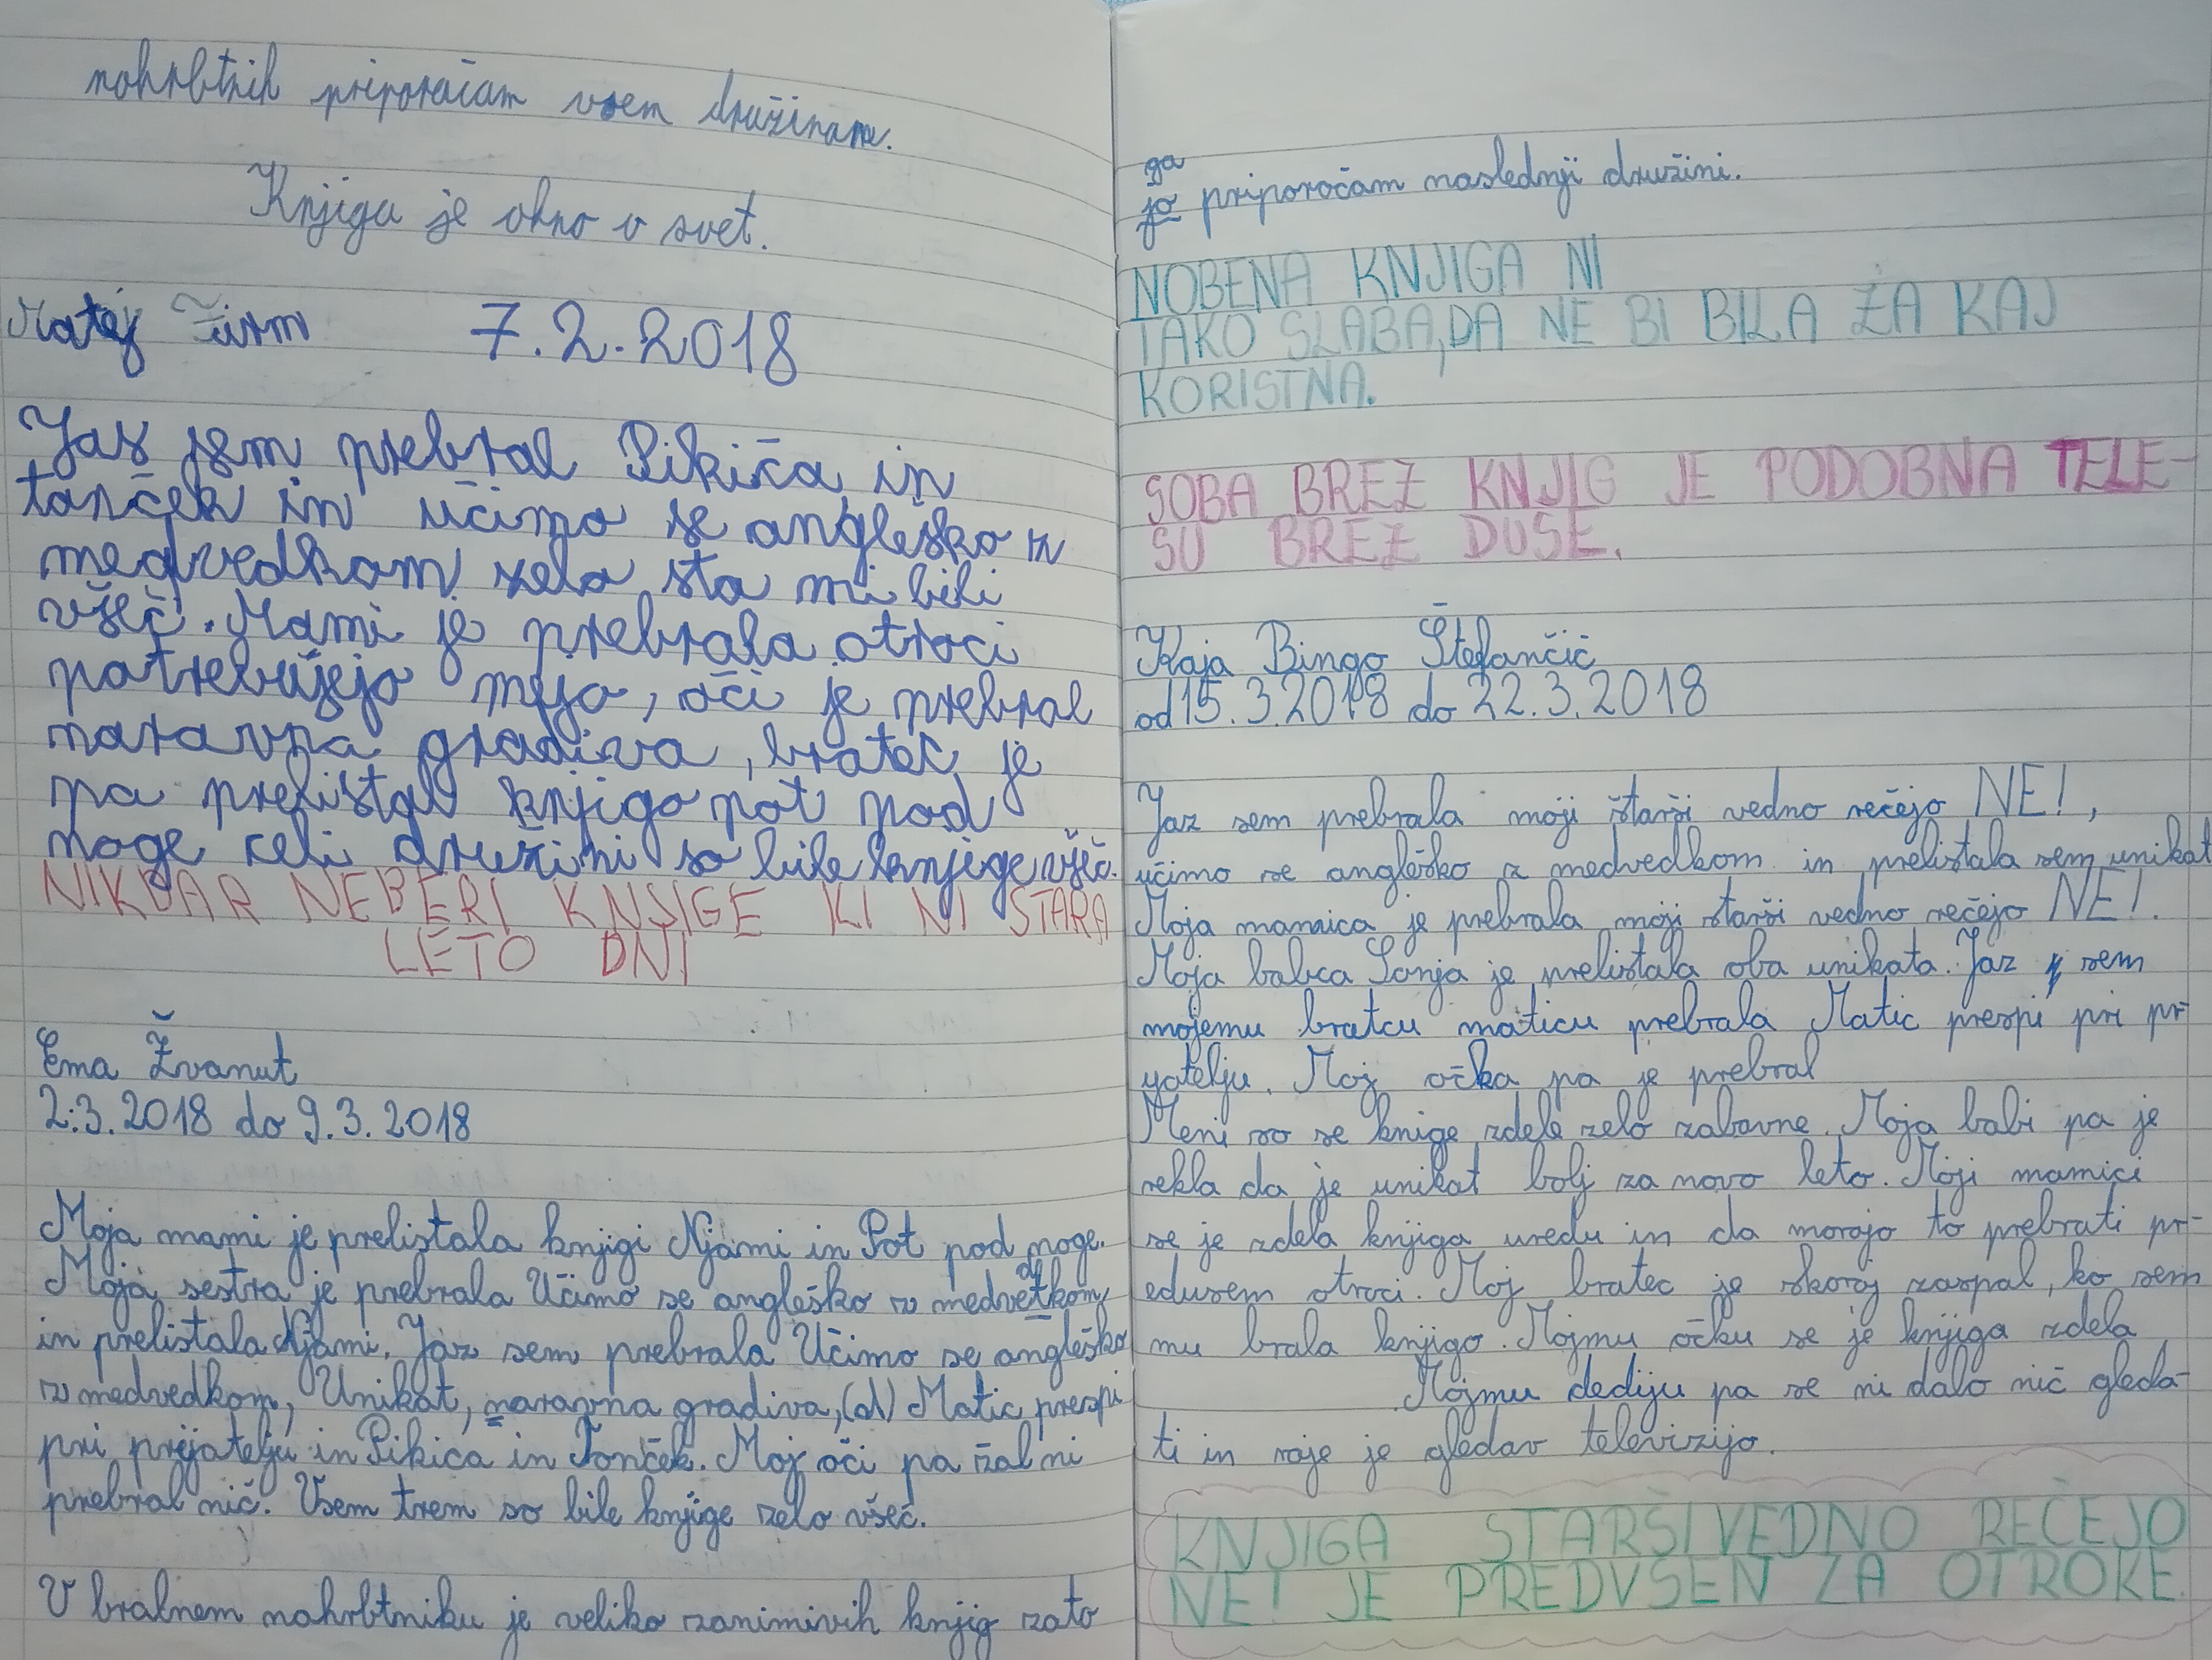 nahrbtnik priporačam vsem družinam.
Knjiga je okno v svet.
Matej 7.2.2018
Jaz sem prebral Pikića in
tonček in učimo se angleško z
medvedkom zelo sta mi bili
všeč. Mami je prebrala otroci
potrebujejo mejo, oči je prebral
naravna gradiva, bratec je
pa prelistal knjigo pot pod
noge celi družini so bile knjige všeč.
NIKDAR NEBERI KNJIGE KI NI STARA
LETO DNI
Ema Žvanut
2.3.2018 do 9.3.2018
Moja mami je prelistala knjigi Njami in Pot pod noge.
Moja sestra je prebrala Učimo se angleško z medvetkom,
in prelistala Njami. Jaz sem prebrala Učimo se angleško
z medvedkom, Unikat, naravna gradiva, (d) Matic prespi
pri prijatelju in Pikica in Tonček. Moj oči pa žal ni
prebral nič. Vsem trem so bile knjige zelo všeč.
V bralnem nahrbtniku je veliko zanimivih knjig zato
ga
jo priporočam naslednji družini.
NOBENA KNJIGA NI
TAKO SLABA, DA NE BI BILA ZA KAJ
KORISTNA.
SOBA BREZ KNJIG JE PODOBNA TELE-
SU BREZ DUSE.
Kaja Bingo Štefančič
od 15.3.2018 do 22.3.2018
Jaz sem prebrala moji starši vedno rečejo NE!,
učimo se angleško z medvedkom in prelistala sem unikat
Moja mamica je prebrala moji starši vedno rečejo NE!.
Moja babca Sonja je prelistala oba unikata. Jaz sem
mojemu bratcu maticu prebrala Matic prespi pri pr-
ijatelju. Moj očka pa je prebral
Meni so se knige zdele zelo zabavne. Moja babi pa je
rekla da je unikat bolj za novo leto. Moji mamici
se je zdela knjiga uredu in da morajo to prebrati pr-
edusem otroci. Moj bratec je skoraj zaspal, ko sem
mu brala knjigo. Mojmu očku se je knjiga zdela
Mojmu dediju pa se ni dalo nič gleda-
ti in raje je gledav televizijo.
KNJIGA STARŠI VEDNO REČEJO
NE! JE PREDVSEN ZA OTROKE.